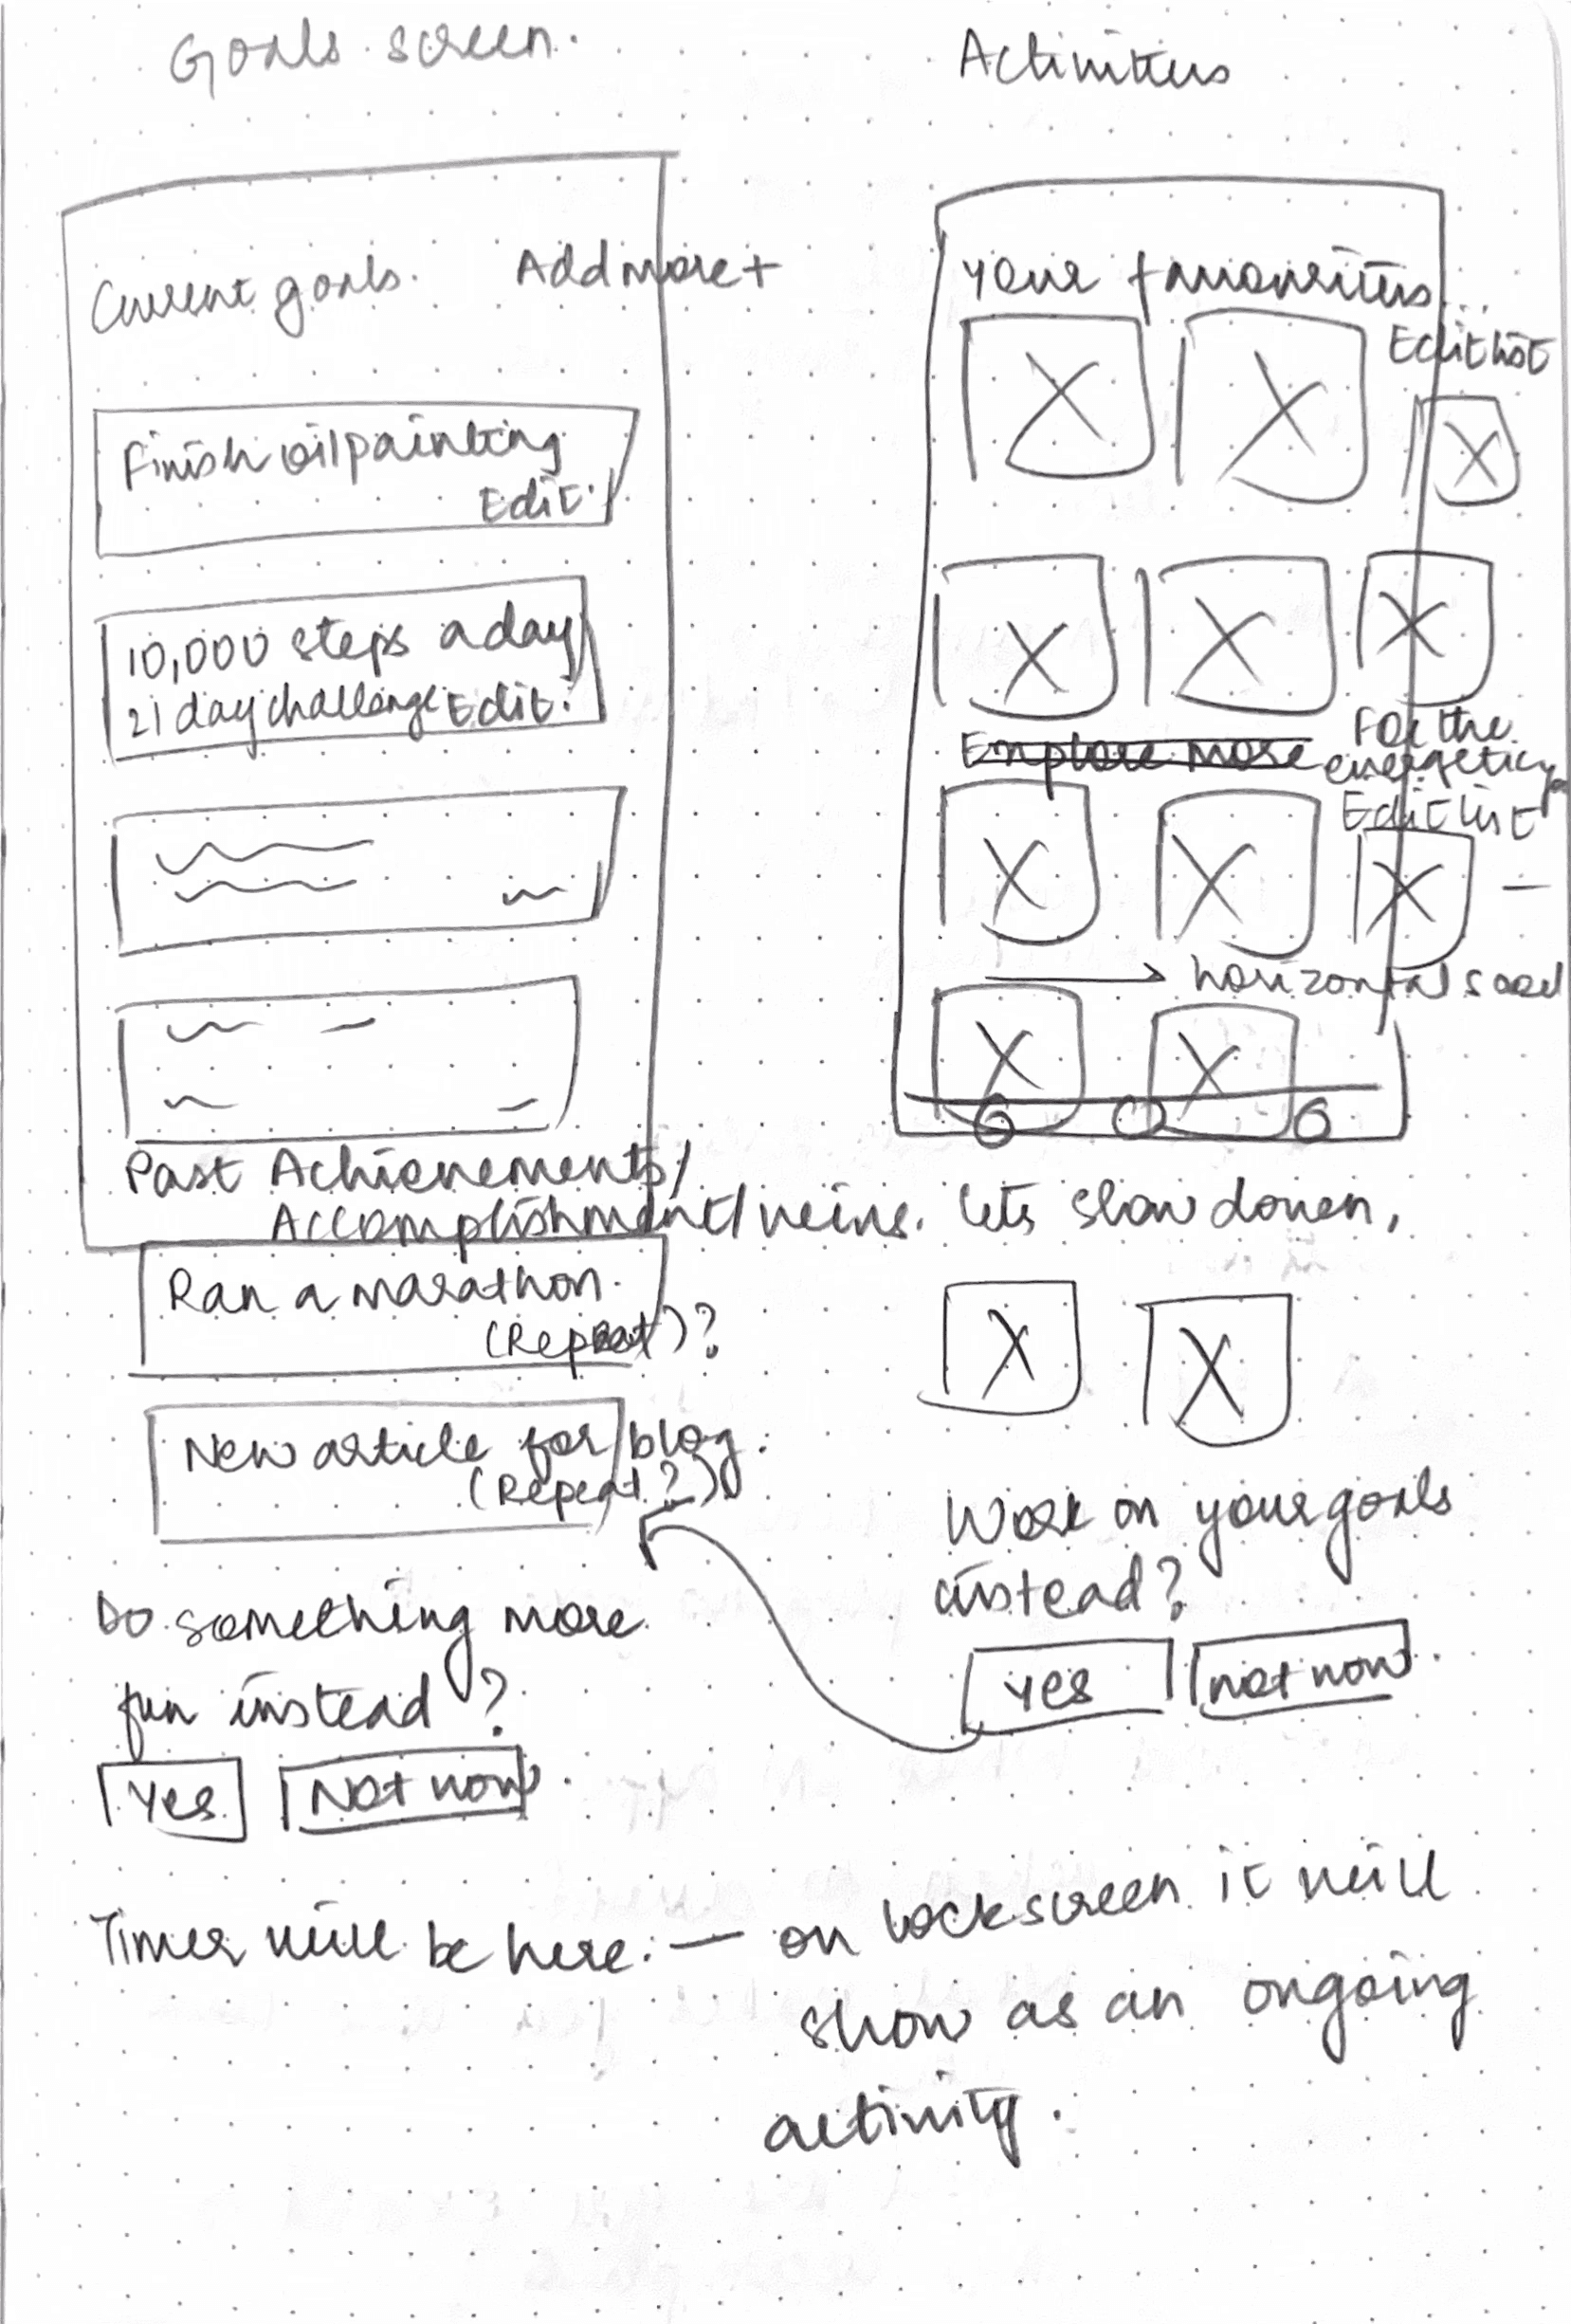 Goals screen.
Current goals. Add more +
Finish oil painting
Edit.
10,000 steps a day
21 day challenge Edit.
Past Achievements/
Accomplishment/wins.
Ran a marathon.
(Repeat)?
New article for blog.
(Repeat?)
Do something more
fun instead?
Yes Not now.
Activities
Your favourites...
Edit list
Explore more
For the
energetic you
Edit list
horizontal scroll
lets slow down,
Work on your goals
instead?
Yes not now.
Timer will be here. — on lockscreen it will
show as an ongoing
activity.